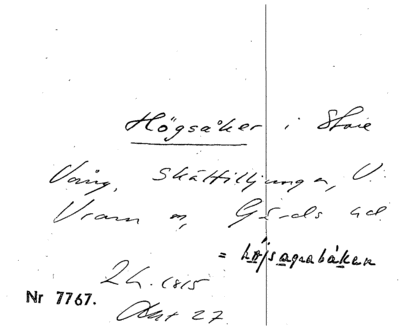 Högsåker i Store
Vång, Skättilljunga n, V.
Vram sn, Gärds hd.
= högsagrabáken
2 h. 1815
Akt 27
Nr 7767.